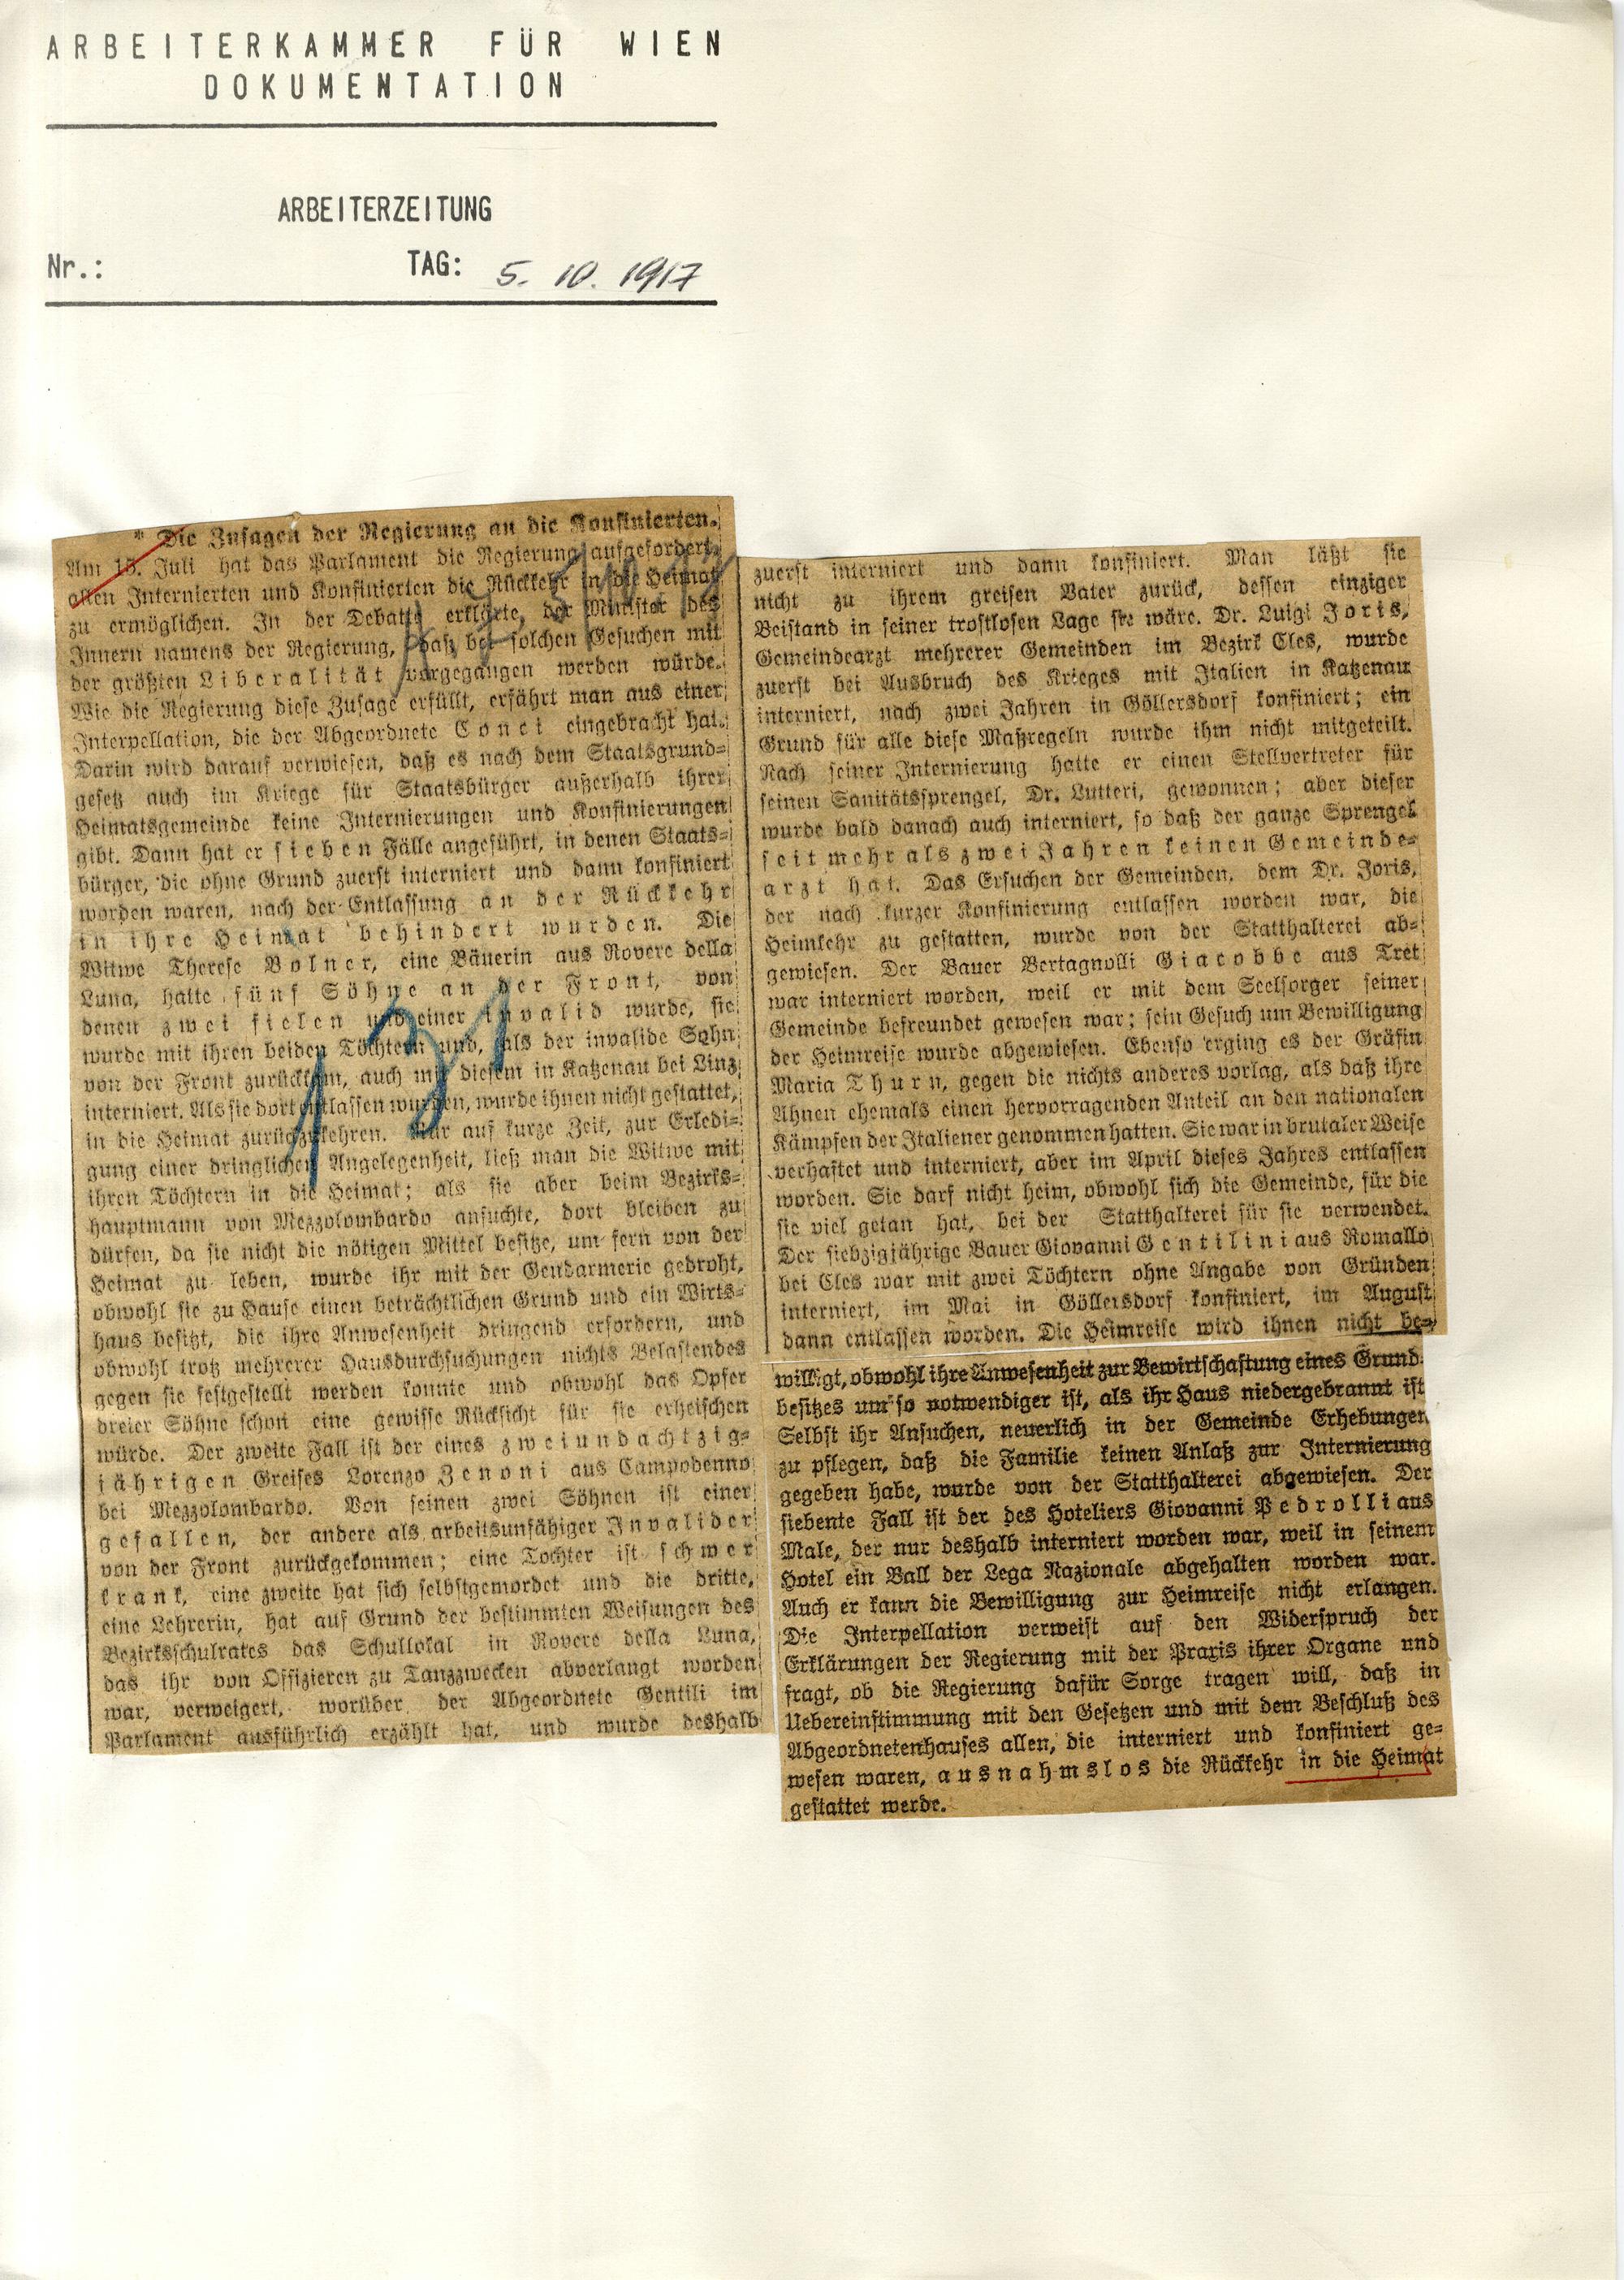 ARBEITERKAMMER FÜR WIEN
DOKUMENTATION
ARBEITERZEITUNG
Nr.: TAG: 5. 10. 1917
* Die Zusagen der Regierung an die Konfinierten.
Am 15. Juli hat das Parlament die Regierung aufgefordert,
allen Internierten und Konfinierten die Rückkehr in die Heimat
zu ermöglichen. In der Debatte erklärte, der Minister des
Innern namens der Regierung, daß bei solchen Gesuchen mit
der größten Liberalität vorgegangen werden würde.
Wie die Regierung diese Zusage erfüllt, erfährt man aus einer
Interpellation, die der Abgeordnete Conci eingebracht hat.
Darin wird darauf verwiesen, daß es nach dem Staatsgrund-
gesetz auch im Kriege für Staatsbürger außerhalb ihrer
Heimatsgemeinde keine Internierungen und Konfinierungen
gibt. Dann hat er sieben Fälle angeführt, in denen Staats-
bürger, die ohne Grund zuerst interniert und dann konfiniert
worden waren, nach der Entlassung an der Rückkehr
in ihre Heimat behindert wurden. Die
Witwe Therese Bolner, eine Bäuerin aus Rovere della
Luna, hatte fünf Söhne an der Front, von
denen zwei fielen und einer invalid wurde, sie
wurde mit ihren beiden Töchtern und, als der invalide Sohn
von der Front zurückkam, auch mit diesem in Katzenau bei Linz
interniert. Als sie dort entlassen wurden, wurde ihnen nicht gestattet,
in die Heimat zurückzukehren. Nur auf kurze Zeit, zur Erledi-
gung einer dringlichen Angelegenheit, ließ man die Witwe mit
ihren Töchtern in die Heimat; als sie aber beim Bezirks-
hauptmann von Mezzolombardo ansuchte, dort bleiben zu
dürfen, da sie nicht die nötigen Mittel besitze, um fern von der
Heimat zu leben, wurde ihr mit der Gendarmerie gedroht,
obwohl sie zu Hause einen beträchtlichen Grund und ein Wirts-
haus besitzt, die ihre Anwesenheit dringend erfordern, und
obwohl trotz mehrerer Hausdurchsuchungen nichts Belastendes
gegen sie festgestellt werden konnte und obwohl das Opfer
dreier Söhne schon eine gewisse Rücksicht für sie erheischen
würde. Der zweite Fall ist der eines zweiundachtzig-
jährigen Greises Lorenzo Zenoni aus Campodenno
bei Mezzolombardo. Von seinen zwei Söhnen ist einer
gefallen, der andere als arbeitsunfähiger Invalider
von der Front zurückgekommen; eine Tochter ist schwer
krank, eine zweite hat sich selbstgemordet und die dritte,
eine Lehrerin, hat auf Grund der bestimmten Weisungen des
Bezirksschulrates das Schullokal in Rovere della Luna,
das ihr von Offizieren zu Tanzzwecken abverlangt worden
war, verweigert, worüber der Abgeordnete Gentili im
Parlament ausführlich erzählt hat, und wurde deshalb
zuerst interniert und dann konfiniert. Man läßt sie
nicht zu ihrem greisen Vater zurück, dessen einziger
Beistand in seiner trostlosen Lage sie wäre. Dr. Luigi Joris,
Gemeindearzt mehrerer Gemeinden im Bezirk Cles, wurde
zuerst bei Ausbruch des Krieges mit Italien in Katzenau
interniert, nach zwei Jahren in Göllersdorf konfiniert; ein
Grund für alle diese Maßregeln wurde ihm nicht mitgeteilt.
Nach seiner Internierung hatte er einen Stellvertreter für
seinen Sanitätssprengel, Dr. Lutteri, gewonnen; aber dieser
wurde bald danach auch interniert, so daß der ganze Sprengel
seit mehr als zwei Jahren keinen Gemeinde-
arzt hat. Das Ersuchen der Gemeinden, dem Dr. Joris,
der nach kurzer Konfinierung entlassen worden war, die
Heimkehr zu gestatten, wurde von der Statthalterei ab-
gewiesen. Der Bauer Bertagnolli Giacobbe aus Tret
war interniert worden, weil er mit dem Seelsorger seiner
Gemeinde befreundet gewesen war; sein Gesuch um Bewilligung
der Heimreise wurde abgewiesen. Ebenso erging es der Gräfin
Maria Thurn, gegen die nichts anderes vorlag, als daß ihre
Ahnen ehemals einen hervorragenden Anteil an den nationalen
Kämpfen der Italiener genommen hatten. Sie war in brutaler Weise
verhaftet und interniert, aber im April dieses Jahres entlassen
worden. Sie darf nicht heim, obwohl sich die Gemeinde, für die
sie viel getan hat, bei der Statthalterei für sie verwendet.
Der siebzigjährige Bauer Giovanni Gentilini aus Romallo
bei Cles war mit zwei Töchtern ohne Angabe von Gründen
interniert, im Mai in Göllersdorf konfiniert, im August
dann entlassen worden. Die Heimreise wird ihnen nicht be-
willigt, obwohl ihre Anwesenheit zur Bewirtschaftung eines Grund-
besitzes um so notwendiger ist, als ihr Haus niedergebrannt ist
Selbst ihr Ansuchen, neuerlich in der Gemeinde Erhebungen
zu pflegen, daß die Familie keinen Anlaß zur Internierung
gegeben habe, wurde von der Statthalterei abgewiesen. Der
siebente Fall ist der des Hoteliers Giovanni Pedrolli aus
Male, der nur deshalb interniert worden war, weil in seinem
Hotel ein Ball der Lega Nazionale abgehalten worden war.
Auch er kann die Bewilligung zur Heimreise nicht erlangen.
Die Interpellation verweist auf den Widerspruch der
Erklärungen der Regierung mit der Praxis ihrer Organe und
fragt, ob die Regierung dafür Sorge tragen will, daß in
Uebereinstimmung mit den Gesetzen und mit dem Beschluß des
Abgeordnetenhauses allen, die interniert und konfiniert ge-
wesen waren, ausnahmslos die Rückkehr in die Heimat
gestattet werde.